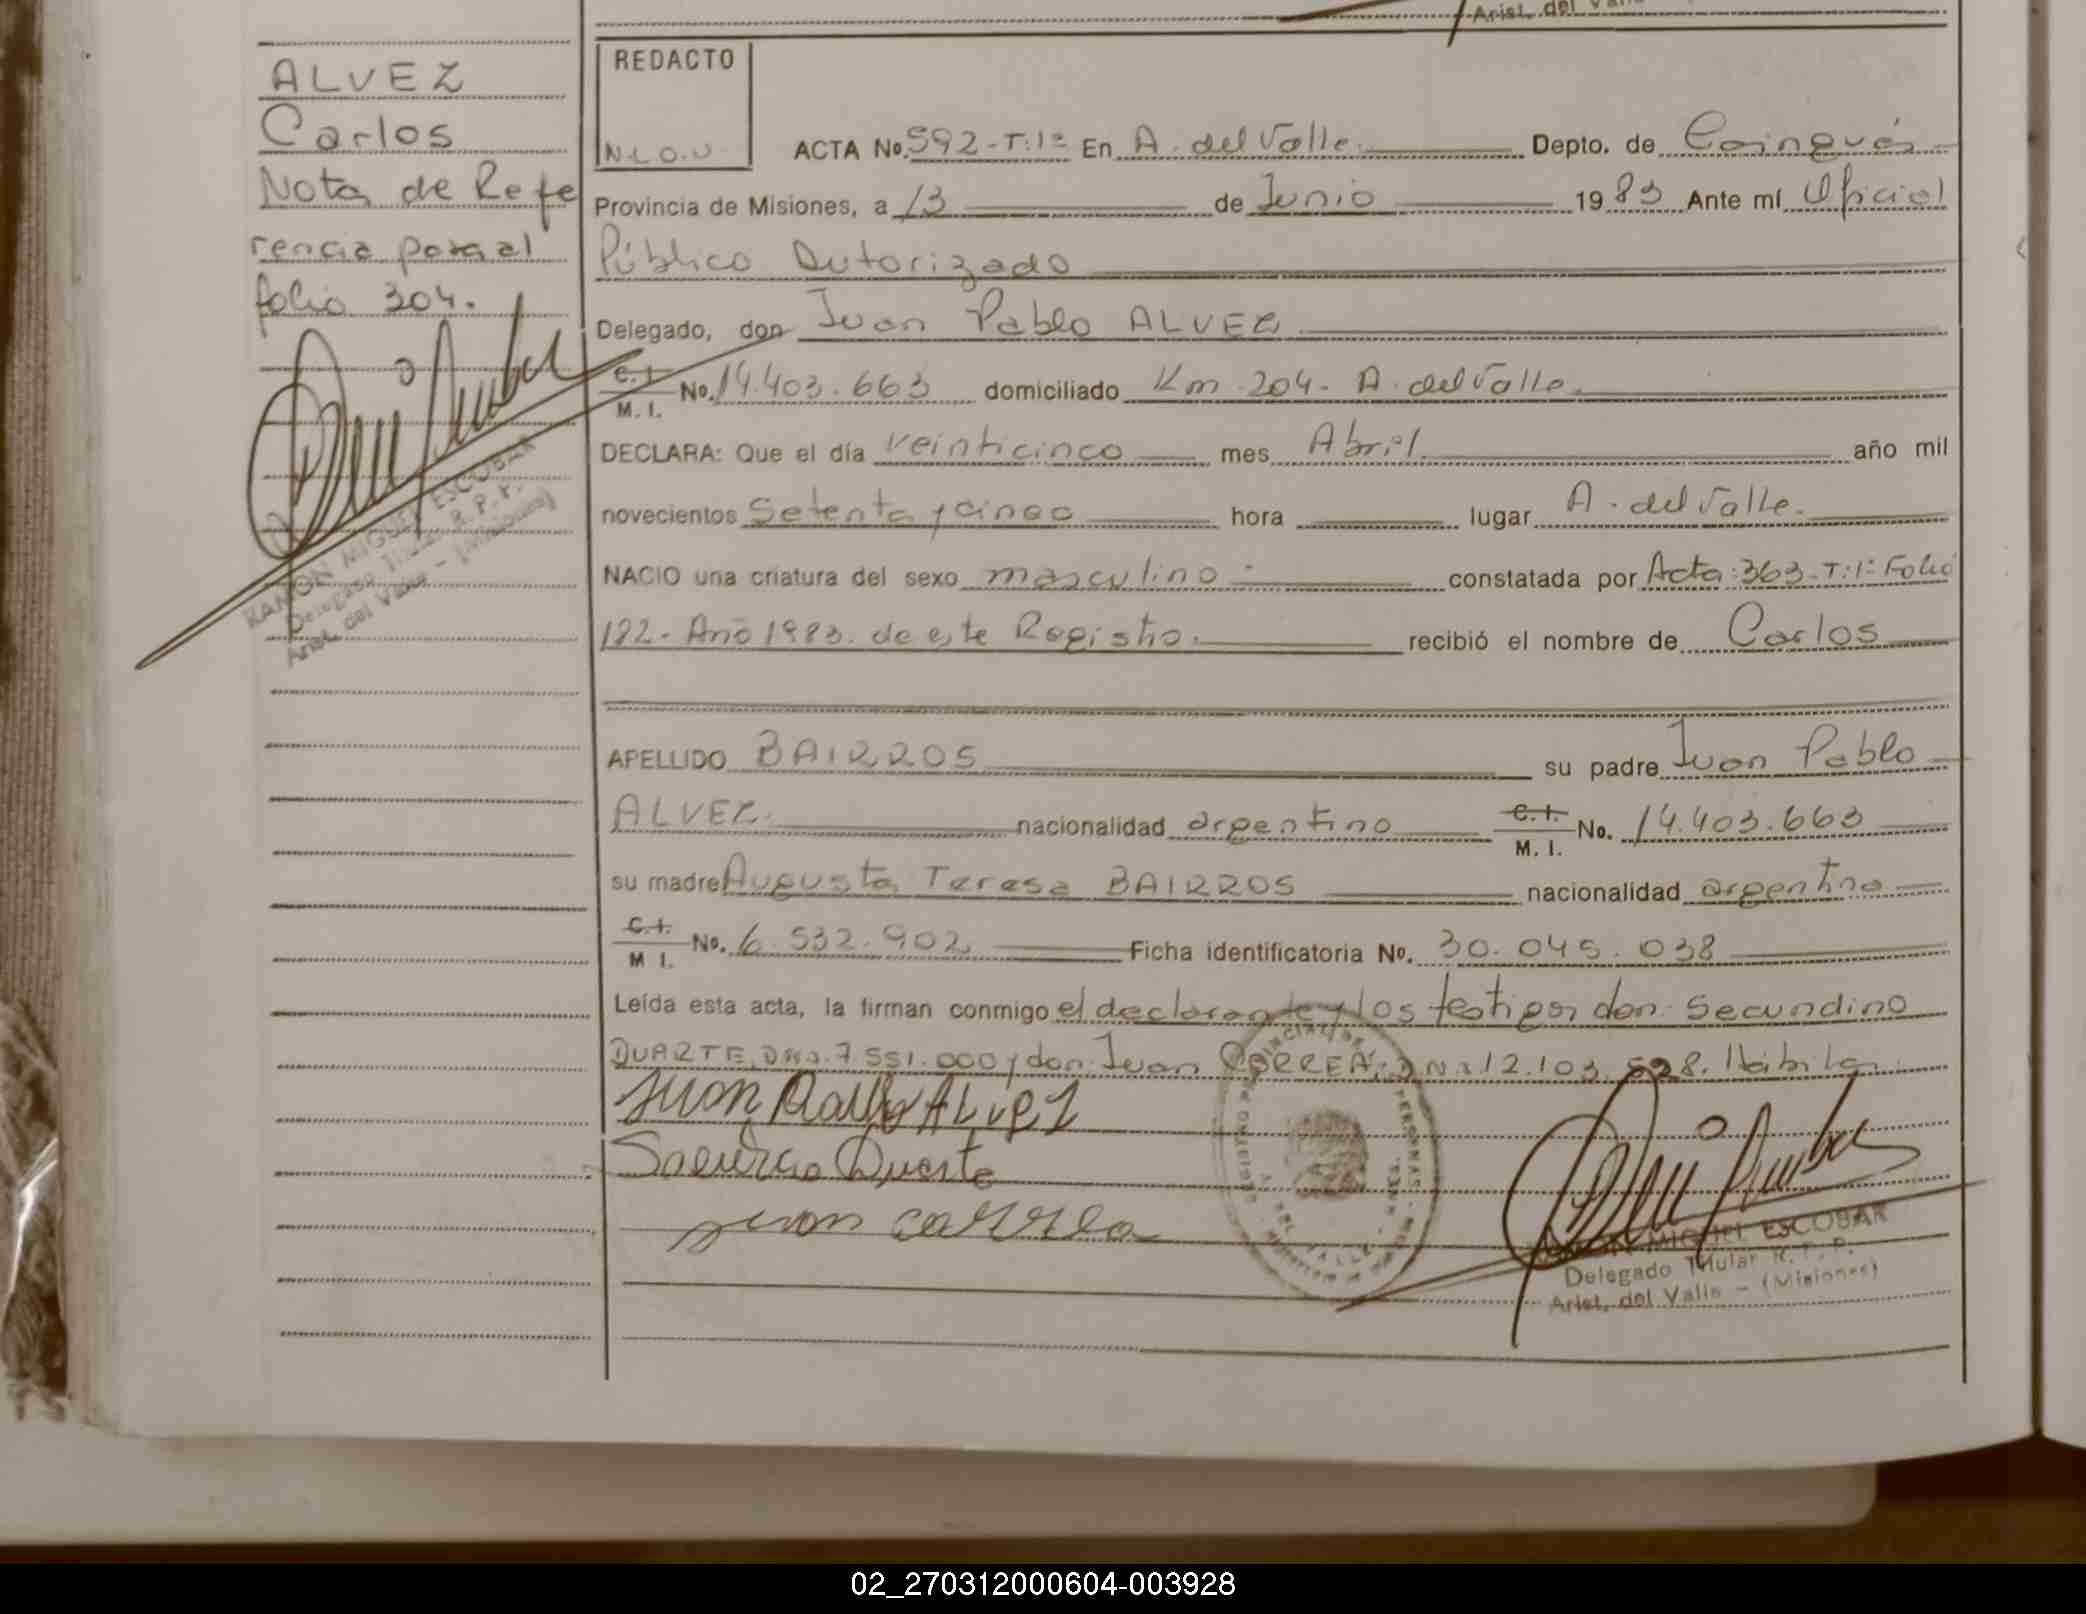 Arist. del Valle
ALVEZ
Carlos
Nota de Refe
rencia para al
folio 304.
RAMON MIGUEL ESCOBAR
Delegado Titular R. P. P.
Arist. del Valle - (Misiones)
REDACTO
N.L.O.U
ACTA No. 592-T:1º En A. del Valle. Depto. de Cainguás
Provincia de Misiones, a 13 de Junio 1983 Ante mí Oficial
Público Autorizado
Delegado, don Juan Pablo ALVEZ
C. I.
M. I. No. 14.403.663 domiciliado Km 204. A. del Valle.
DECLARA: Que el día veinticinco mes Abril año mil
novecientos Setenta y cinco hora lugar A. del Valle.
NACIO una criatura del sexo masculino constatada por Acta:363-T:1º Folio
182. Año 1983. de este Registro. recibió el nombre de Carlos
APELLIDO BAIRROS su padre Juan Pablo
ALVEZ. nacionalidad argentino C. I.
M. I. No. 14.403.663
su madre Augusta Teresa BAIRROS nacionalidad argentina
C. I.
M I. No. 6.532.902 Ficha identificatoria No. 30.045.038
Leída esta acta, la firman conmigo el declarante y los testigos don Secundino
DUARTE, DNI. 7.551.000 y don Juan CORREA, DNI 12.103.528. Hábiles
Juan Pablo ALVEZ
Duarte
Juan Correa
RAMON MIGUEL ESCOBAR
Delegado Titular R. P. P.
Arist. del Valle - (Misiones)
02_270312000604-003928